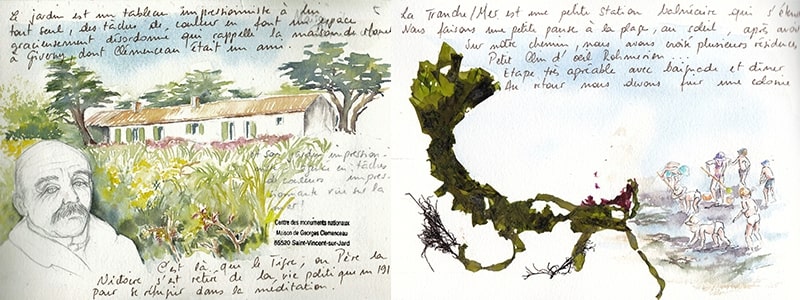 Le jardin est un tableau impressionniste à lui
tout seul, des tâches de couleur en font un espace
gracieusement désordonné qui rappelle la maison de Monet
à Giverny dont Clemenceau était un ami.
et son jardin impression.
de couleurs impres.
vue sur la
mer!
Centre des monuments nationaux
Maison de Georges Clemenceau
85520 Saint-Vincent-sur-Jard
C'est là que le Tigre, ou Père la
Victoire s'est retiré de la vie politique en 191
pour se réfugier dans la méditation.
La Tranche/Mer est une petite station balnéaire qui s'éten
Nous faisons une petite pause à la plage, au soleil, après avoi
Sur notre chemin, nous avons croisé plusieurs résidences
Petit Clin d'oeil Rohmerien...
Etape très agréable avec baignade et dîner
Au retour nous devons fuir une colonie